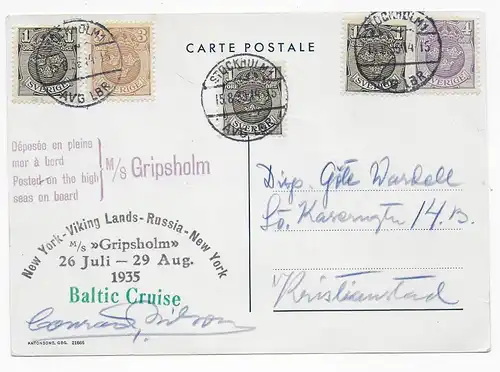 CARTE POSTALE
STOCKHOLM 1
AVG LBR
1 1
SVERIGE
3
SVERIGE
STOCKHOLM 1
15.8.35
AVG LBR
SVERIGE
STOCKHOLM 1
AVG LBR
1 1
SVERIGE
4
SVERIGE
Déposée en pleine
mer à bord
Posted on the high
seas on board
M/S Gripsholm
New York - Viking Lands - Russia - New York
M/s »Gripsholm»
26 Juli — 29 Aug.
1935
Baltic Cruise
Disp. Göte Wardell
Kristianstad
14. B.